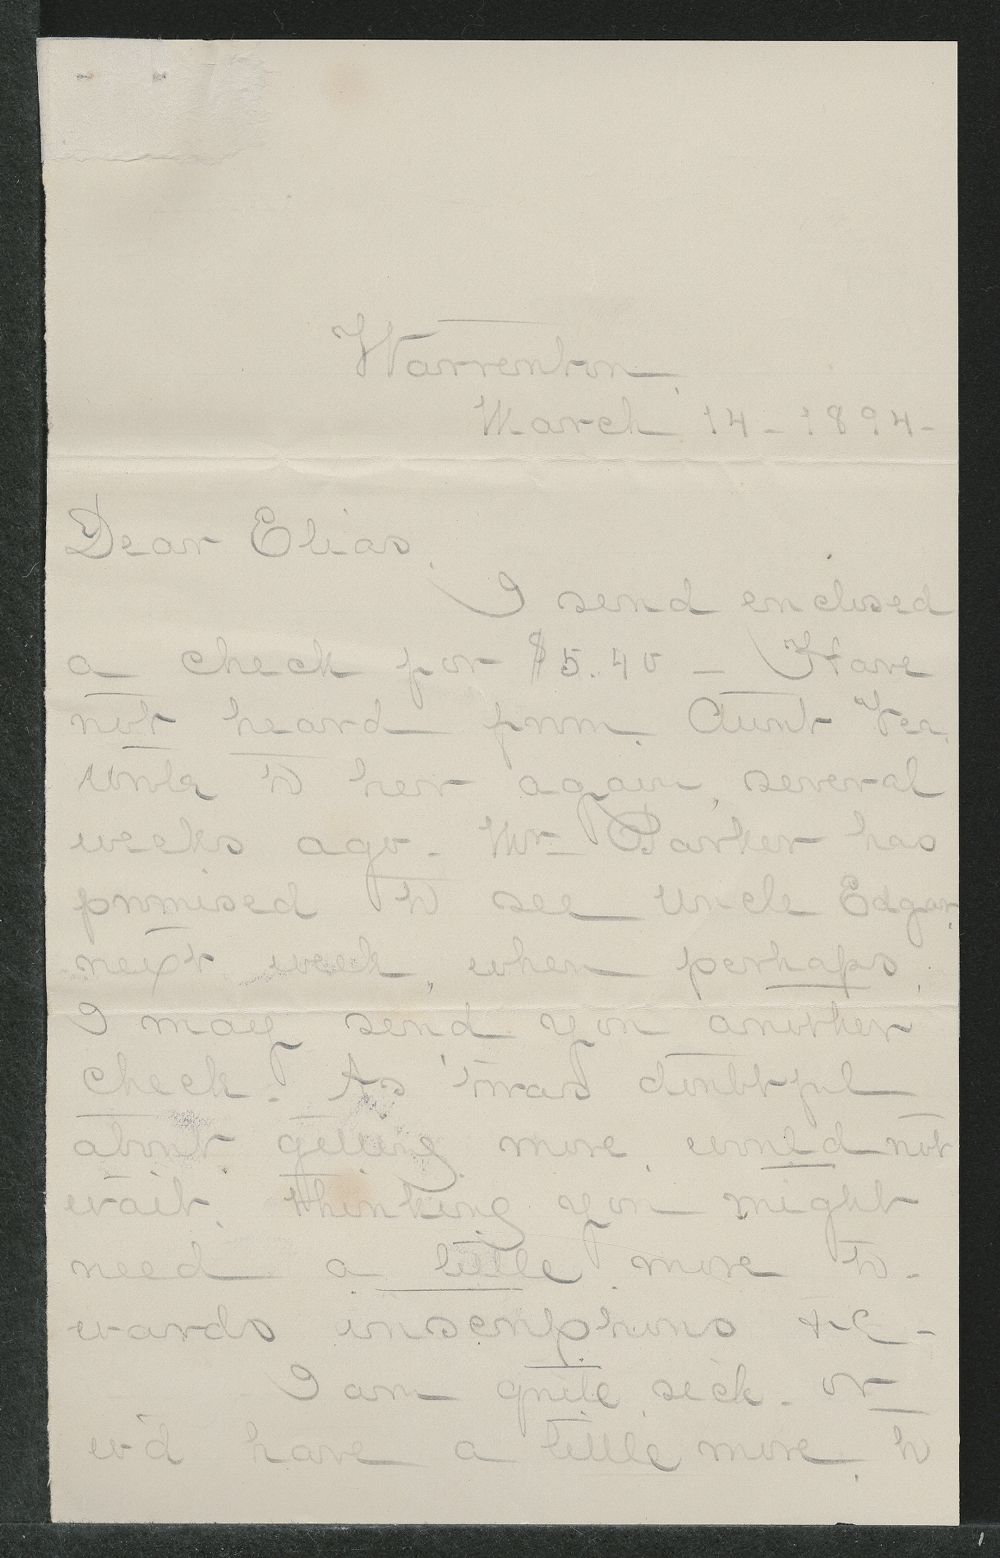 Warrenton
March 14 - 1894 -
Dear Elias,
I send enclosed
a check for $5.40 - Have
not heard from Aunt Ver.
Wrote to her again, several
weeks ago - Mr Barker has
promised to see Uncle Edgar
next week, when perhaps,
I may send you another
check. As 'twas doubtful
about getting more, would not
wait, thinking you might
need a little more to-
wards inscriptions &c -
I am quite sick - or
w'd have a little more to